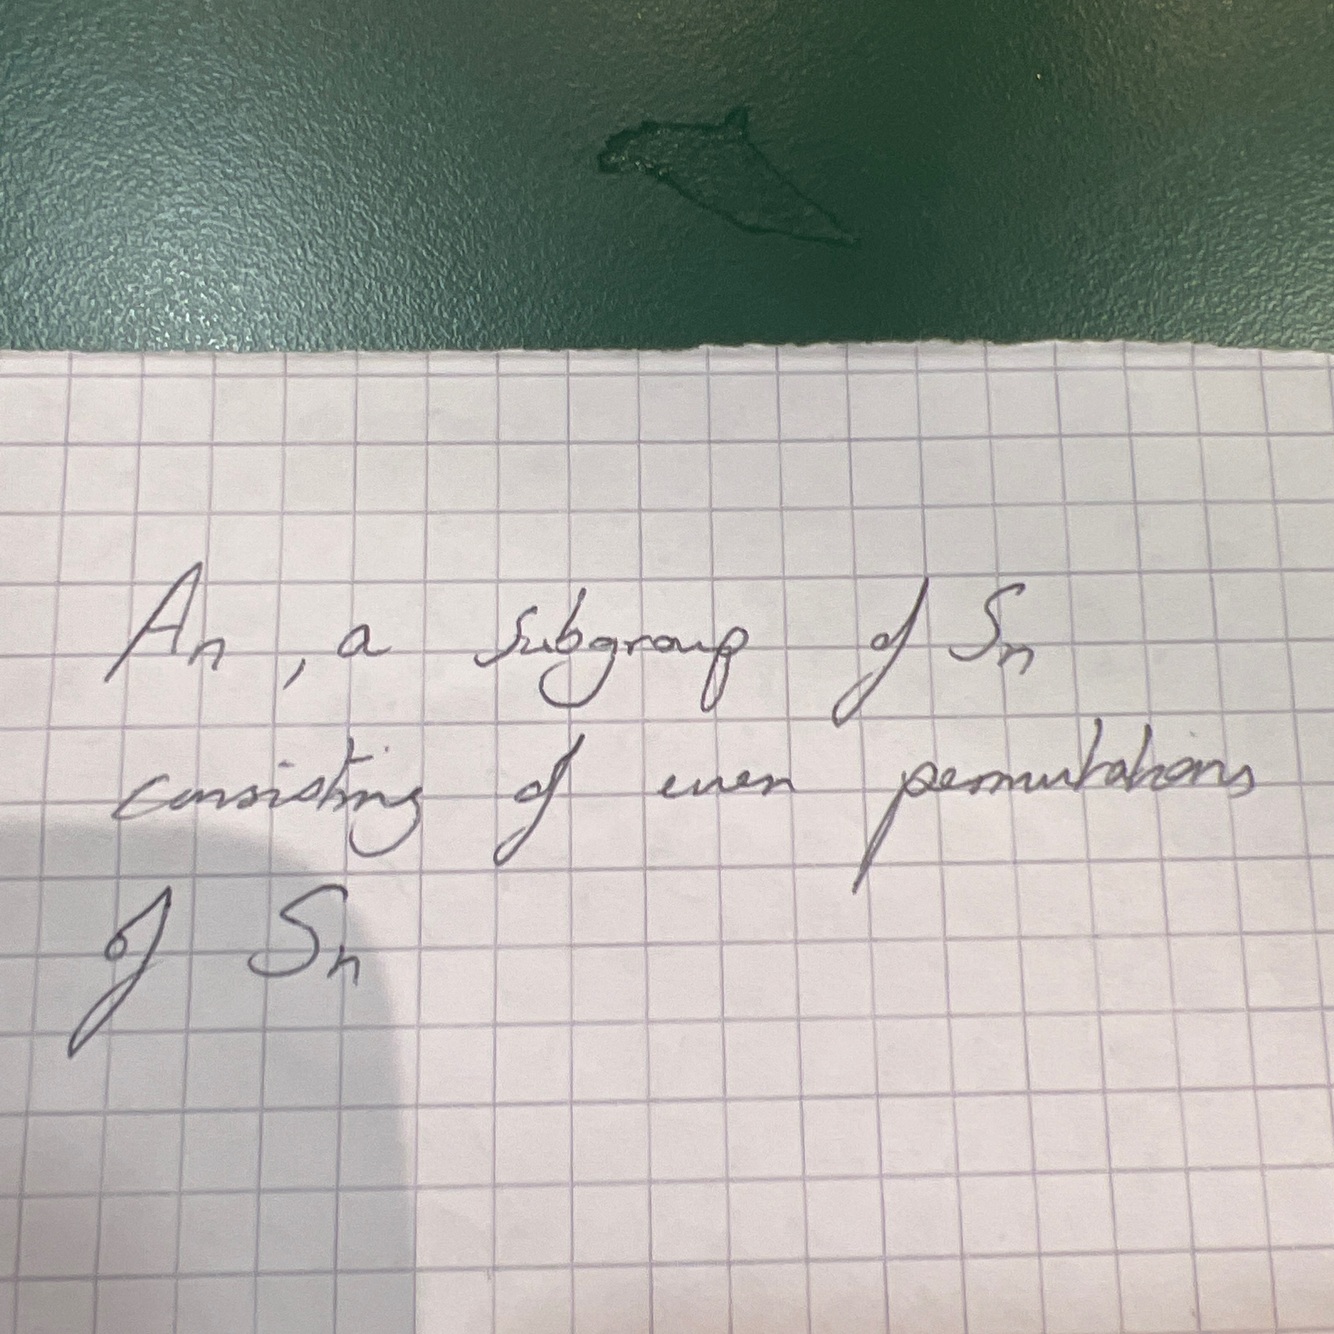 An, a subgroup of Sn
consisting of even permutations
of Sn